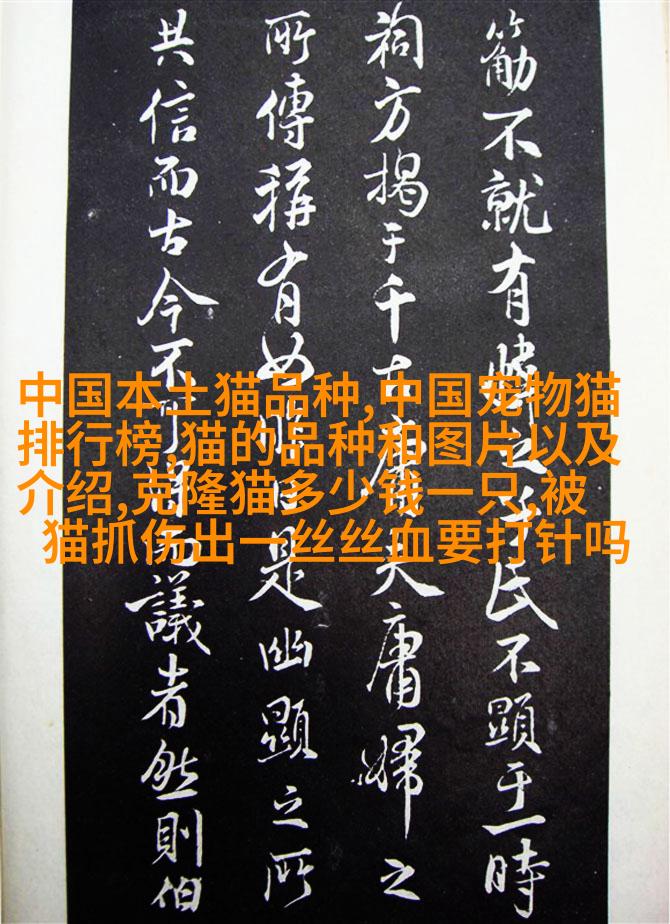 不就有之民不顯于一時
祠方揭于千古庸夫庸婦之
所傳稱有如是幽顯之所
共信而古今不可得而議者然則伯
中国本土猫品种,中国宠物猫
排行榜,猫的品种和图片以及
介绍,克隆猫多少钱一只,被
猫抓伤出一丝丝血要打针吗